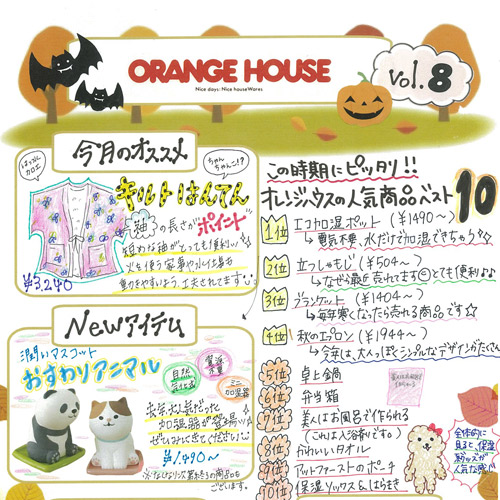 ORANGE HOUSE
Nice days: Nice houseWares
Vol.8
今月のオススメ
はっ水加工
ちゃんちゃんこ!?
キルトはんてん
袖の長さがポイント
短めな袖がとっても便利!
火を使う家事や水仕事も
¥3,240
Newアイテム
潤いマスコット
おすわりアニマル
自然気化式
電源不要
ミニ加湿器
去年大人気だった
加湿器が登場☆
ぜひみにきてください
¥1,490〜
この時期にピッタリ!!
オレンジハウスの人気商品ベスト10
1位 エコ加湿ポット (¥1490〜)
↳電気不要、水だけで加湿できちゃう☆☆
2位 立つしゃもじ (¥504〜)
↳なぜら最近売れてます☺とても便利♪♪
3位 ブランケット (¥1404〜)
↳毎年寒くなったら売れる商品です☆
4位 秋のエプロン (¥1944〜)
↳今年は、大人っぽくシンプルなデザインがたくさん
5位 卓上鍋
6位 弁当箱
7位 美人はお風呂で作られる
(これは入浴剤です。)
8位 かわいいタオル
9位 アットファーストのポーチ
10位 保湿ソックス&はらまき
全体的に
見ると、保温
グッズが
人気な感じ